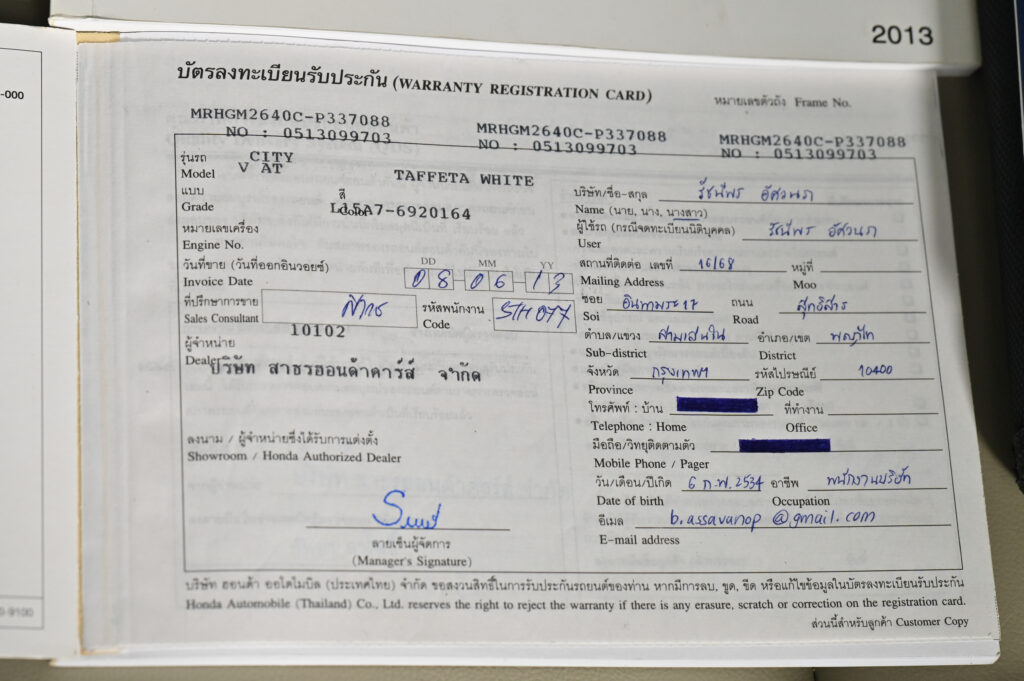 2013
-000
บัตรลงทะเบียนรับประกัน (WARRANTY REGISTRATION CARD)
หมายเลขตัวถัง Frame No.
MRHGM2640C-P337088 MRHGM2640C-P337088 MRHGM2640C-P337088
NO : 0513099703 NO : 0513099703 NO : 0513099703
รุ่นรถ CITY
Model V AT TAFFETA WHITE
แบบ สี
Grade Color L15A7-6920164
หมายเลขเครื่อง
Engine No.
วันที่ขาย (วันที่ออกอินวอยซ์) DD MM YY
Invoice Date 08-06-13
ที่ปรึกษาการขาย รหัสพนักงาน STH077
Sales Consultant Code
10102
ผู้จำหน่าย
Dealer บริษัท สาธรฮอนด้าคาร์ส์ จำกัด
ลงนาม / ผู้จำหน่ายซึ่งได้รับการแต่งตั้ง
Showroom / Honda Authorized Dealer
ลายเซ็นผู้จัดการ
(Manager's Signature)
บริษัท/ชื่อ-สกุล รัชนีพร อัศวนภ
Name (นาย, นาง, นางสาว)
ผู้ใช้รถ (กรณีจดทะเบียนนิติบุคคล) รัชนีพร อัศวนภ
User
สถานที่ติดต่อ เลขที่ 16/68 หมู่ที่
Mailing Address Moo
ซอย อินทามระ 17 ถนน สุทธิสาร
Soi Road
ตำบล/แขวง สามเสนใน อำเภอ/เขต พญาไท
Sub-district District
จังหวัด กรุงเทพฯ รหัสไปรษณีย์ 10400
Province Zip Code
โทรศัพท์ : บ้าน ที่ทำงาน
Telephone : Home Office
มือถือ/วิทยุติดตามตัว
Mobile Phone / Pager
วัน/เดือน/ปีเกิด 6 ก.พ. 2534 อาชีพ พนักงานบริษัท
Date of birth Occupation
อีเมล b.assavanop @gmail.com
E-mail address
บริษัท ฮอนด้า ออโตโมบิล (ประเทศไทย) จำกัด ขอสงวนสิทธิ์ในการรับประกันรถยนต์ของท่าน หากมีการลบ, ขูด, ขีด หรือแก้ไขข้อมูลในบัตรลงทะเบียนรับประกัน
Honda Automobile (Thailand) Co., Ltd. reserves the right to reject the warranty if there is any erasure, scratch or correction on the registration card.
ส่วนนี้สำหรับลูกค้า Customer Copy
-9100